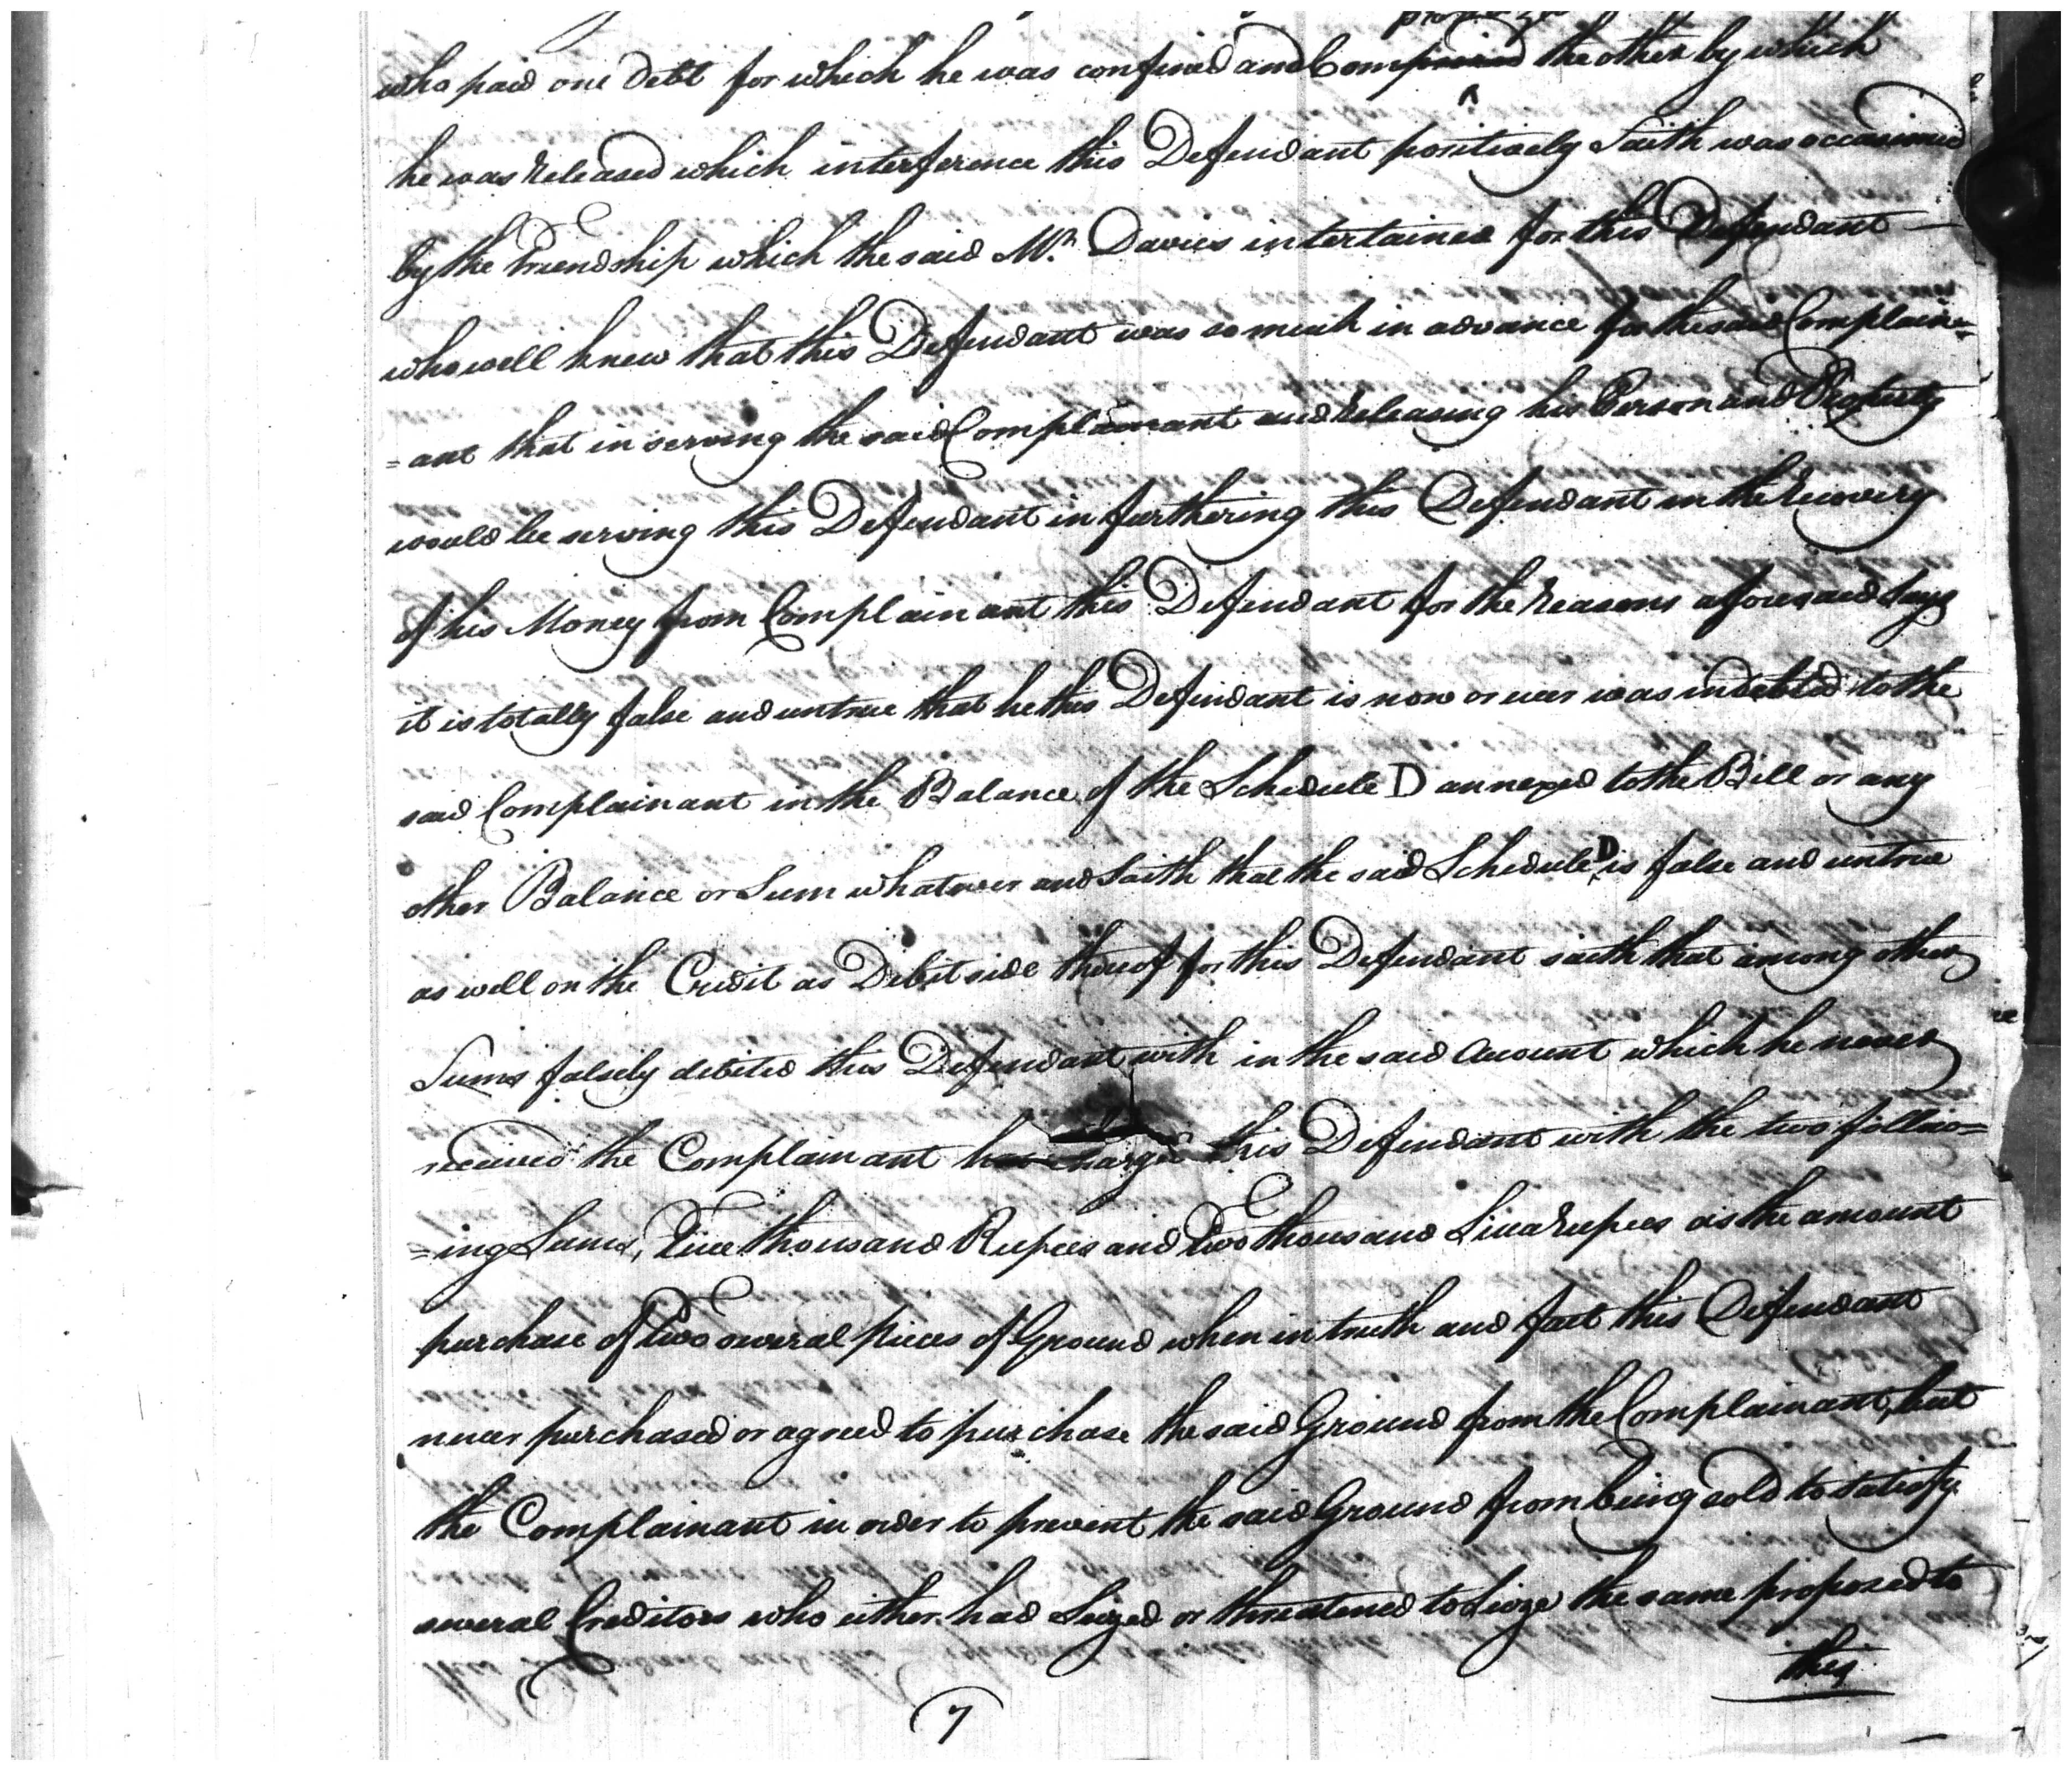 who paid one Debt for which he was confined and Comp the other by which
he was Released which interference this Defendant positively Saith was occasioned
by the Friendship which the said Mr. Davies intertained for this Defendant
who well knew that this Defendant was so much in advance for the said Complain=
=ant that in serving the said Complainant and Releasing his Person and Property
would be serving this Defendant in furthering this Defendant in the Recovery
of his Money from Complainant this Defendant for the Reasons aforesaid Says
it is totally false and untrue that he this Defendant is now or ever was indebted to the
said Complainant in the Balance of the Schedule D annexed to the Bill or any
other Balance or Sum whatever and Saith that the said Schedule D is false and untrue
as well on the Credit as Debit side thereof for this Defendant saith that among other
Sums falsely debited this Defendant with in the said Account which he never
received the Complainant has charged this Defendant with the two follow=
=ing Sums, thousand Rupees and Two thousand Sicca Rupees as the amount
purchase of Two several Pieces of Ground when in truth and fact this Defendant
never purchased or agreed to purchase the said Ground from the Complainant, but
the Complainant in order to prevent the said Ground from being sold to satisfy
several Creditors who either had Seized or threatened to Seize the same proposed to
this
7